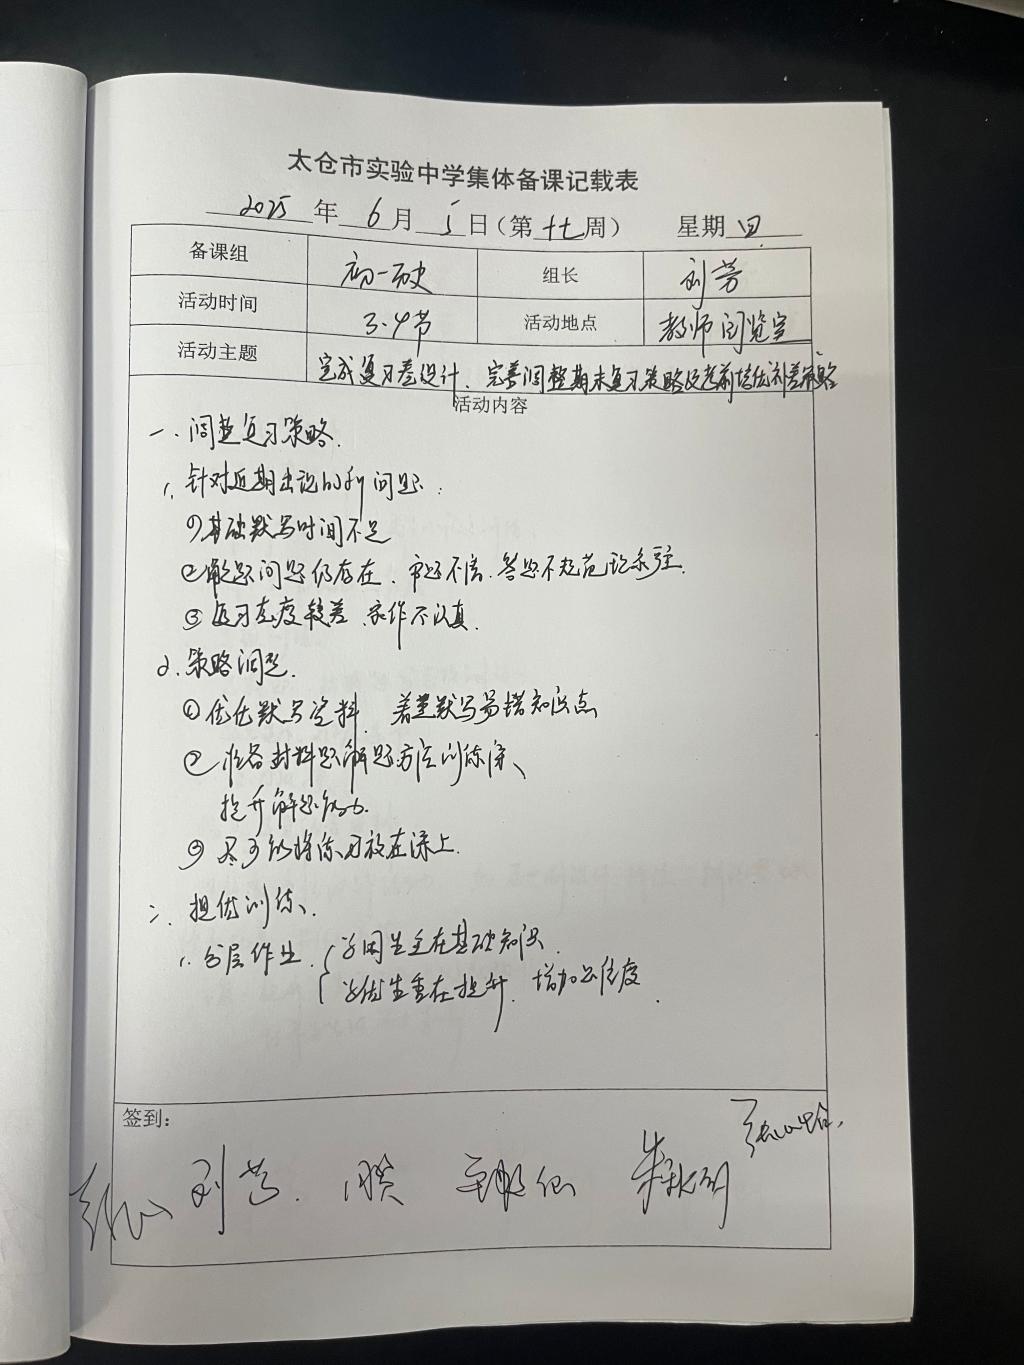 太仓市实验中学集体备课记载表
2025年6月5日（第十七周） 星期四
备课组 初一历史 组长 刘芳
活动时间 3.4节 活动地点 教师阅览室
活动主题 完成复习卷设计、完善调整期末复习策略及考前培优补差策略
活动内容
一、调整复习策略.
1. 针对近期出现的新问题:
①基础默写时间不足
②解题问题仍存在、审题不清、答题不规范
③复习态度较差 家作不认真.
2. 策略调整.
①优化默写资料 着重默写易错知识点
②准备材料题解题方法训练课、
提升解题能力.
③尽可能将练习放在课上.
二、提优训练、
1. 分层作业. 学困生主在基础知识.
学优生重在提升、增加难度.
签到:
刘芳.